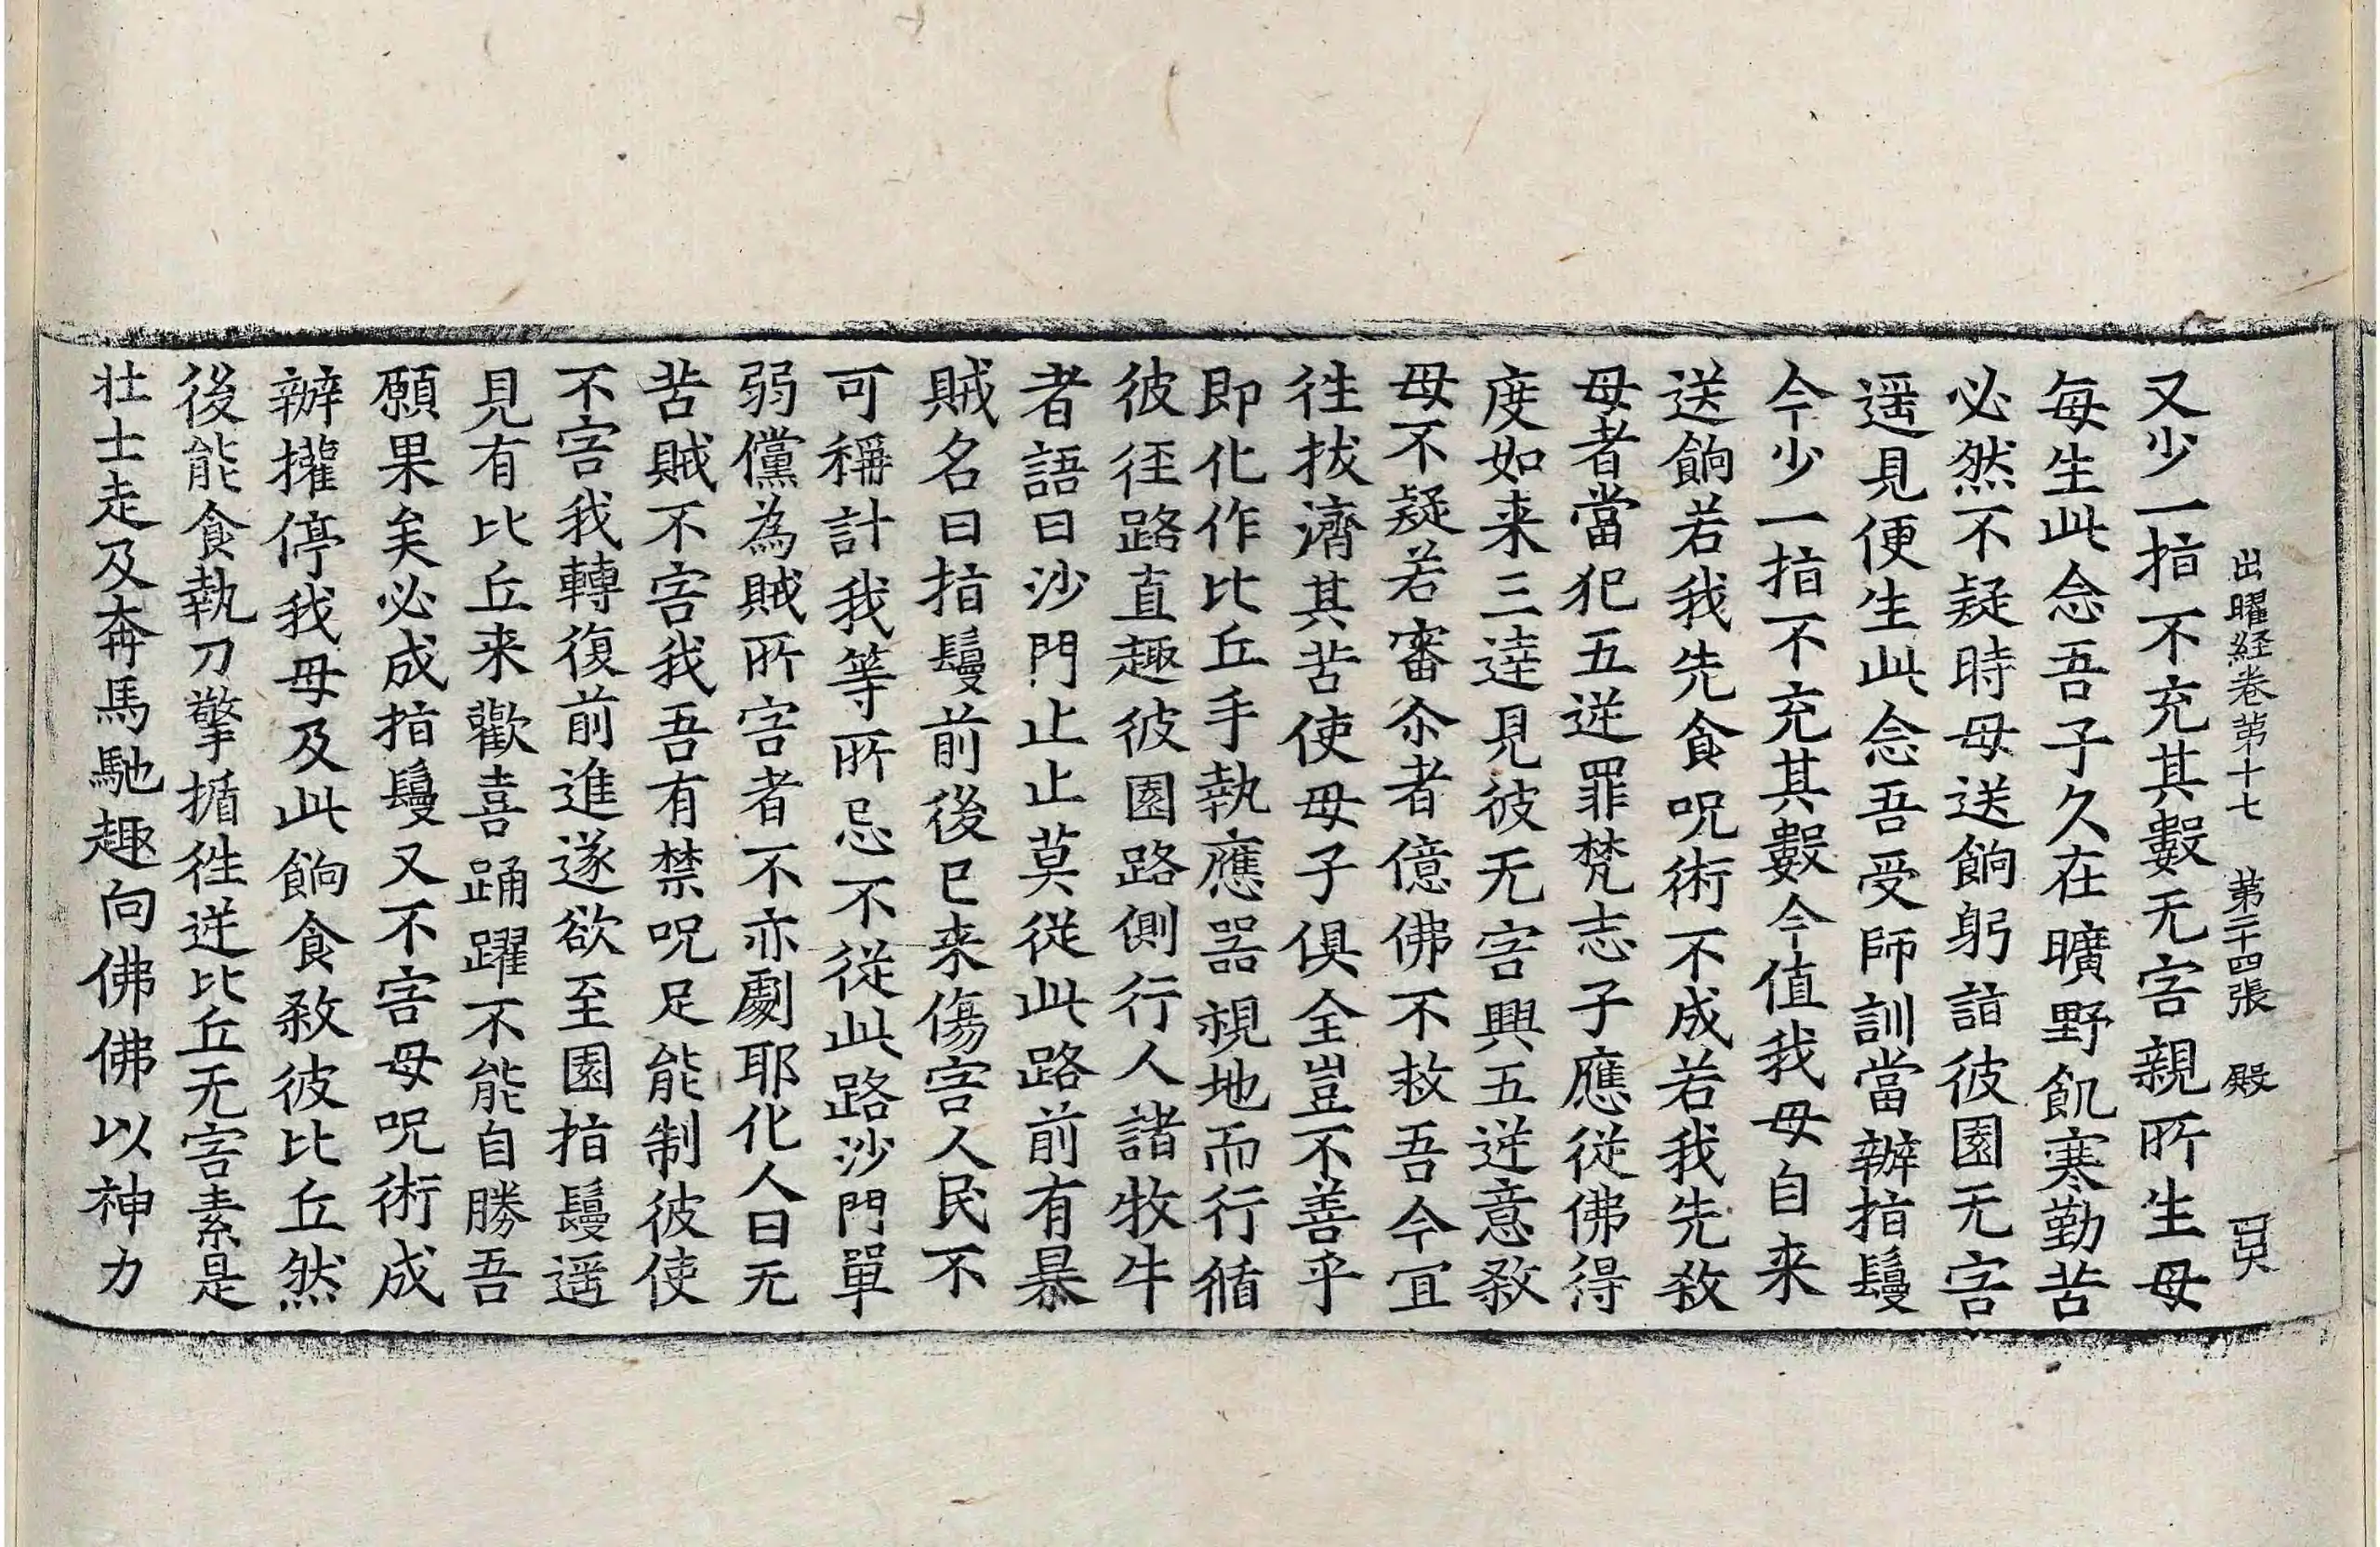 出曜経巻第十七 第二十四張 殿
又少一指不充其數无害親所生母
每生此念吾子久在曠野飢寒勤苦
必然不疑時母送餉躬詣彼園无害
遥見便生此念吾受師訓當辦指鬘
今少一指不充其數今值我母自来
送餉若我先食呪術不成若我先煞
母者當犯五逆罪梵志子應從佛得
度如来三達見彼无害興五逆意煞
母不疑若審尒者億佛不救吾今宜
往拔濟其苦使母子俱全豈不善乎
即化作比丘手執應器視地而行循
彼徑路直趣彼園路側行人諸牧牛
者語曰沙門止止莫從此路前有暴
賊名曰指鬘前後已来傷害人民不
可稱計我等所忌不從此路沙門單
弱儻為賊所害者不亦劇耶化人曰无
苦賊不害我吾有禁呪足能制彼使
不害我轉復前進遂欲至園指鬘遥
見有比丘来歡喜踊躍不能自勝吾
願果矣必成指鬘又不害母呪術成
辦權停我母及此餉食煞彼比丘然
後能食執刀擎揗往逆比丘无害素是
壮士走及奔馬馳趣向佛佛以神力